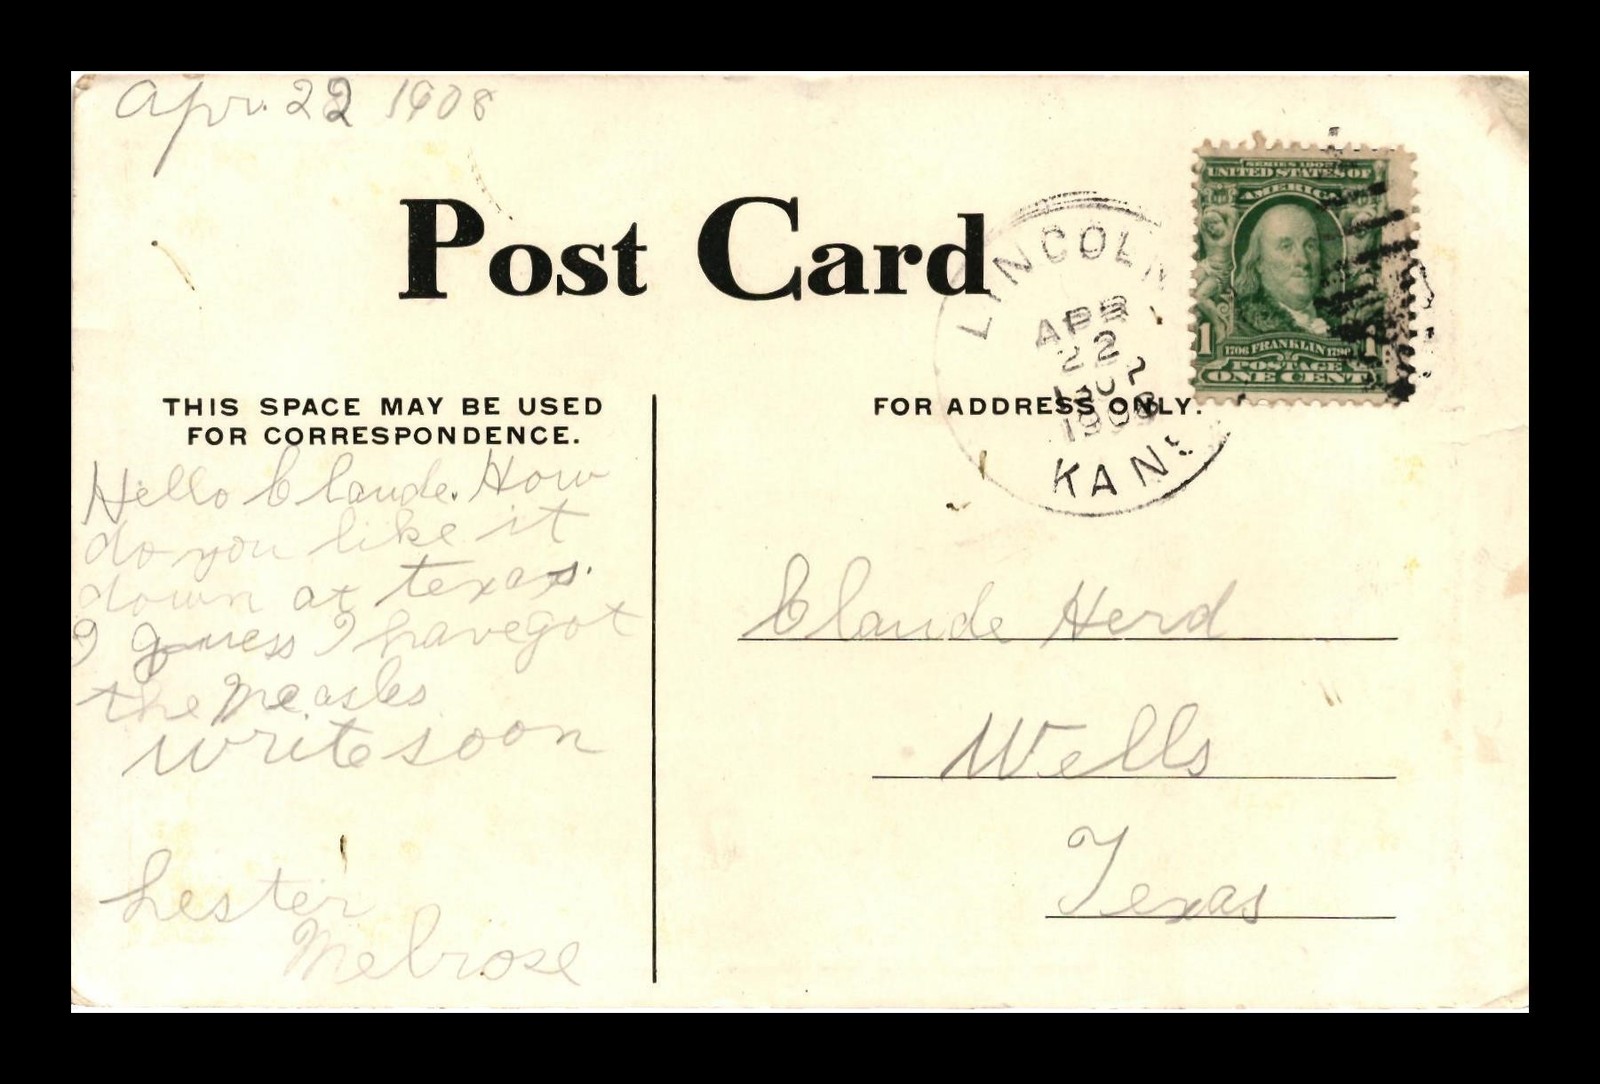 Apr. 22 1908
Post Card
LINCOLN
APR
22
1908
KANS
SERIES 1902
UNITED STATES OF
AMERICA
1 1706 FRANKLIN 1790 1
POSTAGE
ONE CENT
THIS SPACE MAY BE USED
FOR CORRESPONDENCE.
Hello Claude. How
do you like it
down at texas.
I guess I have got
the Measles
write soon
Lester
Melrose
FOR ADDRESS ONLY.
Claude Herd
Wells
Texas